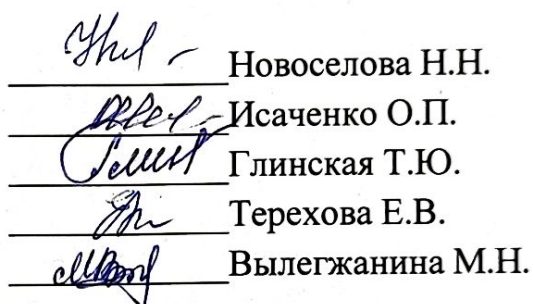 Новоселова Н.Н.
Исаченко О.П.
Глинская Т.Ю.
Терехова Е.В.
Вылегжанина М.Н.